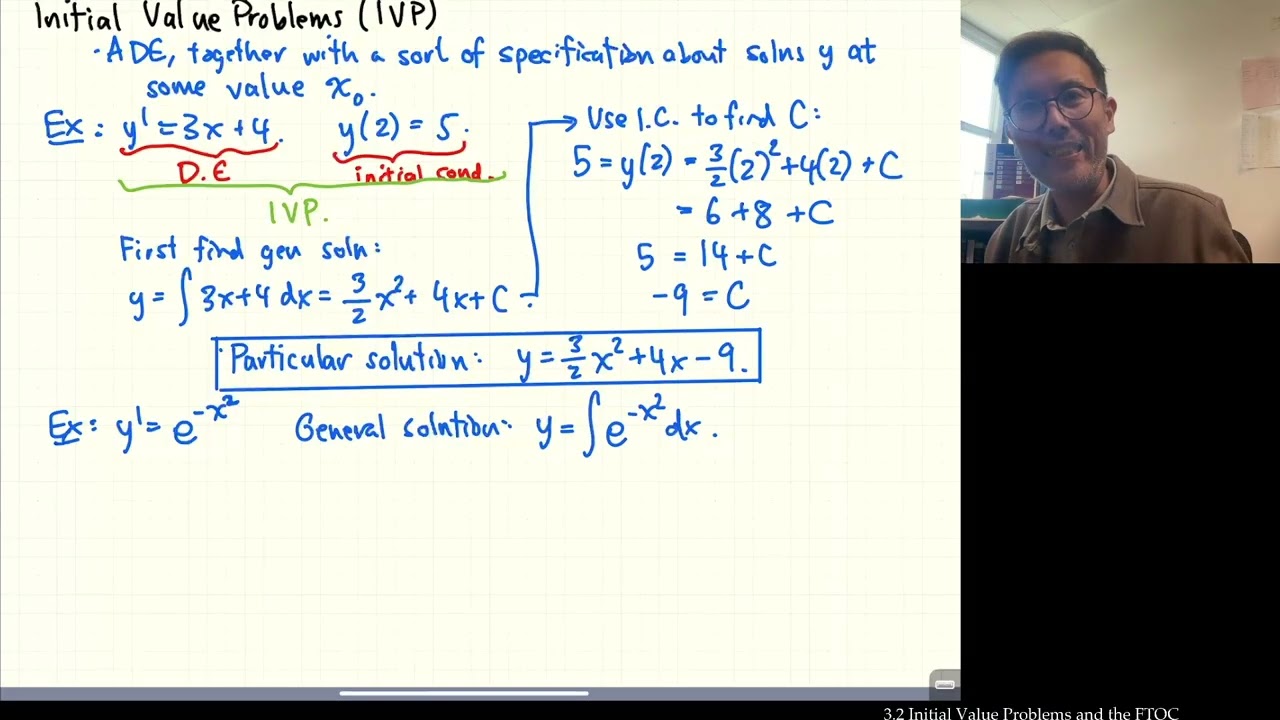 Initial Value Problems (IVP)
· A DE, together with a sort of specification about solns y at
some value x₀.
Ex: y' = 3x+4. y(2) = 5.
D.E initial cond.
IVP.
First find gen soln:
y = ∫ 3x+4 dx = 3/2 x² + 4x + C
→ Use I.C. to find C:
5 = y(2) = 3/2 (2)² + 4(2) + C
= 6 + 8 + C
5 = 14 + C
-9 = C
Particular solution: y = 3/2 x² + 4x - 9.
Ex: y' = e^(-x²) General solution: y = ∫ e^(-x²) dx.
3.2 Initial Value Problems and the FTOC